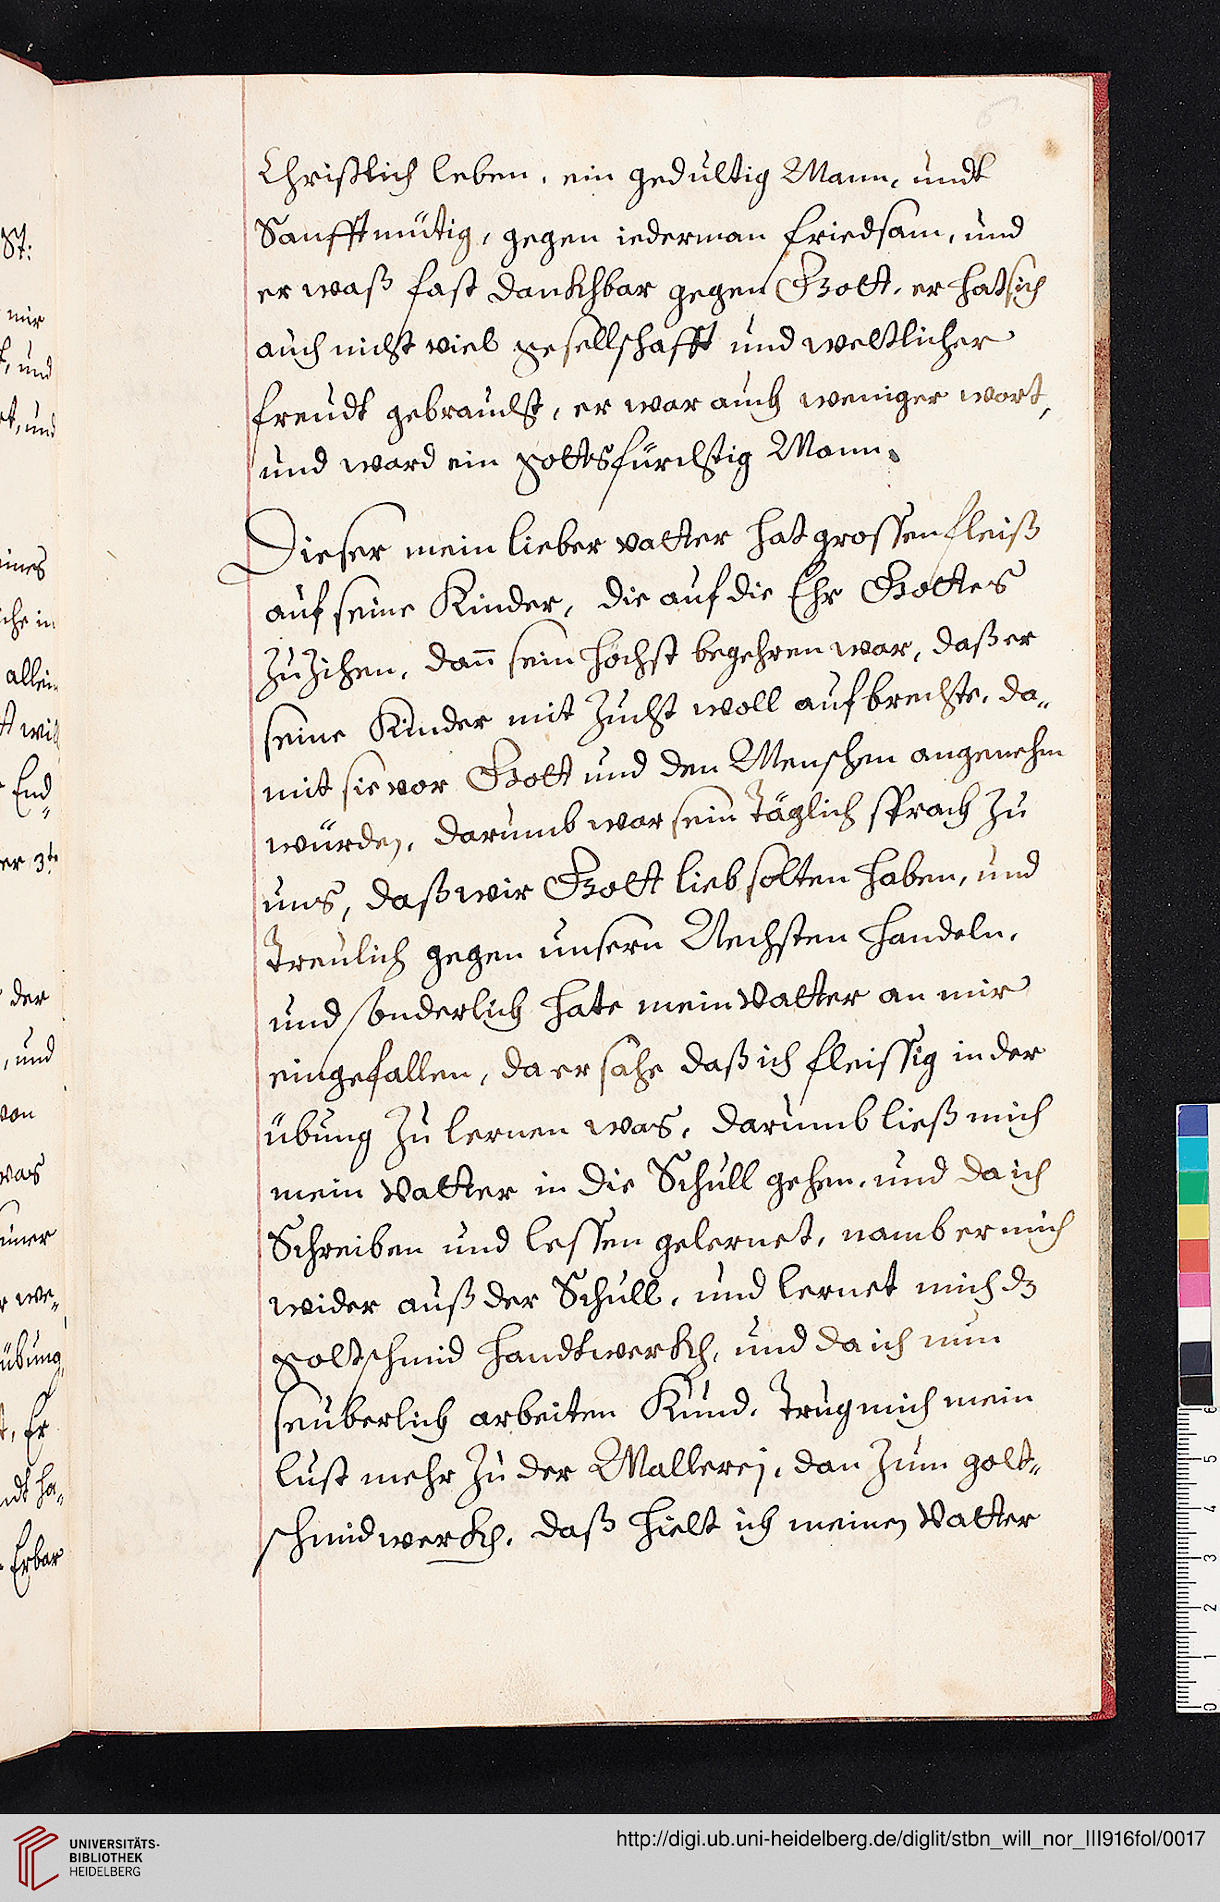 Christlich leben, ein gedultig Mann, undt
Sanfftmütig, gegen iederman friedsam, und
er waß fast danckhbar gegen Gott, er hat sich
auch nicht viel gesellschafft und weltlicher
freudt gebraucht, er war auch weniger wort,
und ward ein gottsfürchtig Mann.
Dieser mein lieber vatter hat grossen fleiß
auf seine Kinder, die auf die Ehr Gottes
zu zihen, dañ sein höchst begehren war, daß er
seine Kinder mit zucht woll aufbrechte, da„
mit sie vor Gott und den Menschen angenehm
würden, darumb war sein täglich sprach zu
uns, daß wir Gott lieb solten haben, und
treulich gegen unsern Nechsten handeln,
und sonderlich hate mein Vatter an mir
ein gefallen, da er sahe daß ich fleissig in der
übung zu lernen was, darumb ließ mich
mein Vatter in die Schull gehen, und da ich
Schreiben und lessen gelernet, namb er mich
wider auß der Schull, und lernet mich dz
goltschmid handtwerckh, und da ich nun
seuberlich arbeiten Kund, trug mich mein
lust mehr zu der Mallerej, dan zum golt„
schmidwerckh, daß hielt ich meinen Vatter
St:
mir
und
und
ines
iche in
allei
wil
End„
er 3te
der
, und
von
was
iner
we„
übung,
Er
ndt ha„
Erbar
UNIVERSITÄTS-
BIBLIOTHEK
HEIDELBERG
http://digi.ub.uni-heidelberg.de/diglit/stbn_will_nor_III916fol/0017
6
5
4
3
2
1
0